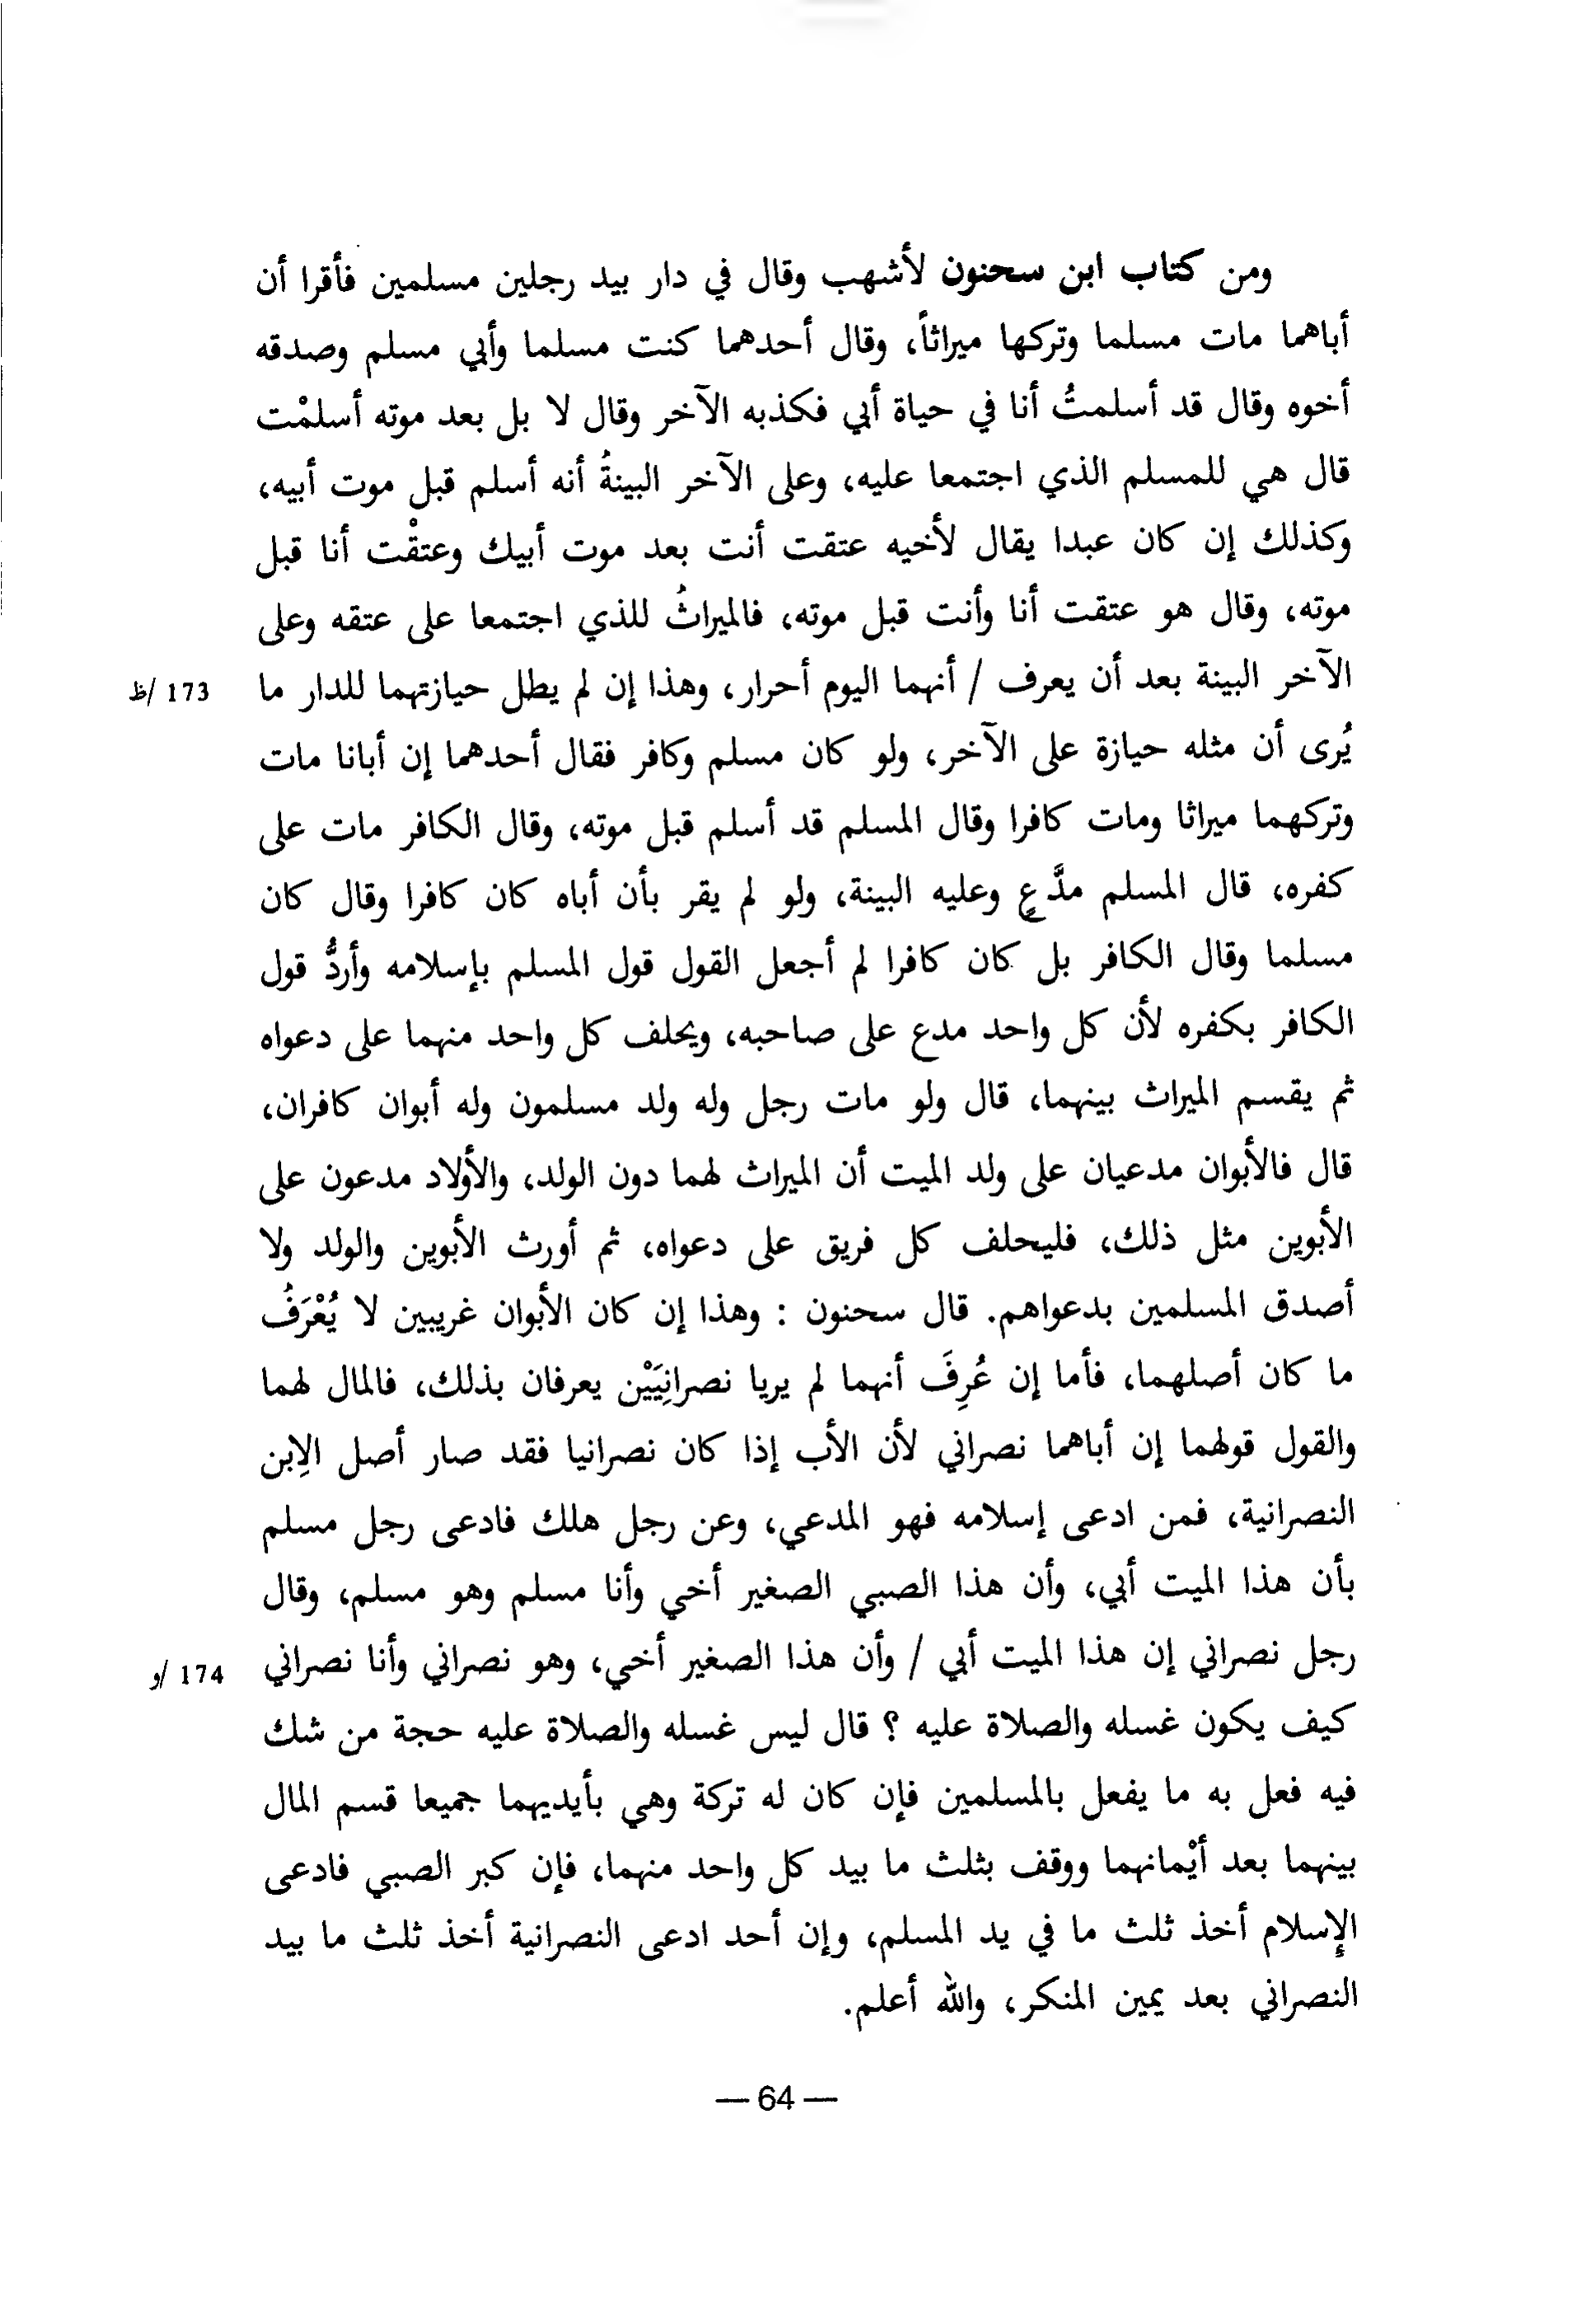 ومن كتاب ابن سحنون لأشهب وقال في دار بيد رجلين مسلمين فأقرا أن
أباهما مات مسلما وتركها ميراثاً، وقال أحدهما كنت مسلما وأبي مسلم وصدقه
أخوه وقال قد أسلمتُ أنا في حياة أبي فكذبه الآخر وقال لا بل بعد موته أسلمْت
قال هي للمسلم الذي اجتمعا عليه، وعلى الآخر البينةُ أنه أسلم قبل موت أبيه،
وكذلك إن كان عبدا يقال لأخيه عتقت أنت بعد موت أبيك وعتقْت أنا قبل
موته، وقال هو عتقت أنا وأنت قبل موته، فالميراثُ للذي اجتمعا على عتقه وعلى
الآخر البينة بعد أن يعرف / أنهما اليوم أحرار، وهذا إن لم يطل حيازتهما للدار ما 173 /ظ
يُرى أن مثله حيازة على الآخر، ولو كان مسلم وكافر فقال أحدهما إن أبانا مات
وتركهما ميراثا ومات كافرا وقال المسلم قد أسلم قبل موته، وقال الكافر مات على
كفره، قال المسلم مدَّعٍ وعليه البينة، ولو لم يقر بأن أباه كان كافرا وقال كان
مسلما وقال الكافر بل كان كافرا لم أجعل القول قول المسلم بإسلامه وأردُّ قول
الكافر بكفره لأن كل واحد مدع على صاحبه، ويحلف كل واحد منهما على دعواه
ثم يقسم الميراث بينهما، قال ولو مات رجل وله ولد مسلمون وله أبوان كافران،
قال فالأبوان مدعيان على ولد الميت أن الميراث لهما دون الولد، والأولاد مدعون على
الأبوين مثل ذلك، فليحلف كل فريق على دعواه، ثم أورث الأبوين والولد ولا
أصدق المسلمين بدعواهم. قال سحنون : وهذا إن كان الأبوان غريبين لا يُعْرَفُ
ما كان أصلهما، فأما إن عُرِفَ أنهما لم يريا نصرانِيَيْن يعرفان بذلك، فالمال لهما
والقول قولهما إن أباهما نصراني لأن الأب إذا كان نصرانيا فقد صار أصل الإبن
النصرانية، فمن ادعى إسلامه فهو المدعي، وعن رجل هلك فادعى رجل مسلم
بأن هذا الميت أبي، وأن هذا الصبي الصغير أخي وأنا مسلم وهو مسلم، وقال
رجل نصراني إن هذا الميت أبي / وأن هذا الصغير أخي، وهو نصراني وأنا نصراني 174 /و
كيف يكون غسله والصلاة عليه ؟ قال ليس غسله والصلاة عليه حجة من شك
فيه فعل به ما يفعل بالمسلمين فإن كان له تركة وهي بأيديهما جميعا قسم المال
بينهما بعد أيْمانهما ووقف بثلث ما بيد كل واحد منهما، فإن كبر الصبي فادعى
الإسلام أخذ ثلث ما في يد المسلم، وإن أحد ادعى النصرانية أخذ ثلث ما بيد
النصراني بعد يمين المنكر، والله أعلم.
— 64 —